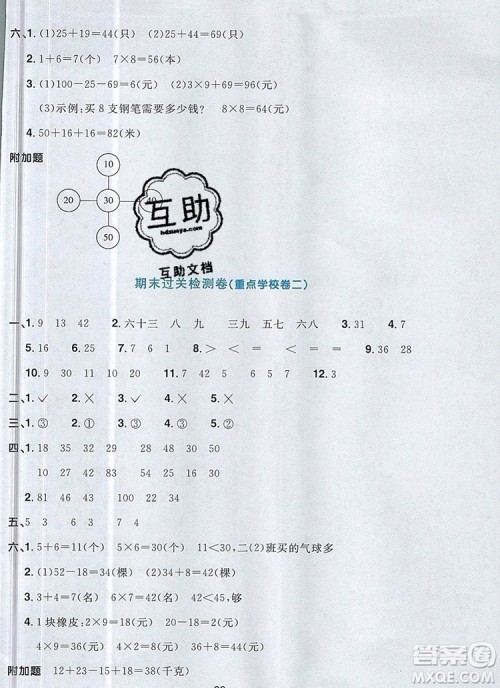 六、1.(1)25+19=44(只)　(2)25+44=69(只)
2. 1+6=7(个)　7×8=56(本)
3.(1)100-25-69=6(元)　(2)3×9+6=33(元)
(3)示例:买 8 支钢笔需要多少钱?　8×8=64(元)
4. 50+16+16=82(米)
附加题
10
20 30
50
互助
hdzuoye.com
互助文档
期末过关检测卷(重点学校卷二)
一、1. 9　13　42　2. 六十三　八　九　三九　五七　六八　3. 31　4. 7
5. 15　6. 16　7. 20　24　28　8. ＞　＜　=　=　＜　=　9. 36　28
10. 9　30　24　11. 10　7　42　5　63　7　12. 3
二、1. ✓　2. ×　3. ×　4. ✓　5. ×
三、1. ③　2. ①　3. ①　4. ③　5. ②
四、1. 18　35　32　54　28　50　24
10　27　64　38　4　49　30
2. 81　46　100　34　43　51
五、5　3　6　8　4
六、1. 5+6=11(个)　5×6=30(个)　11＜30,二(2)班买的气球多
2. (1)52-18=34(棵)　(2)34+18=52(棵)
3. 3+4=7(名)　6×7=42(名)　42＜45,够
4. 1 块橡皮:(1)6×9=54(元)　2×9=18(元)
4×9=36(元)　(2)36-18=18(元)
附加题　12+23-15+18=38(千克)
答案圈
MXQE.COM